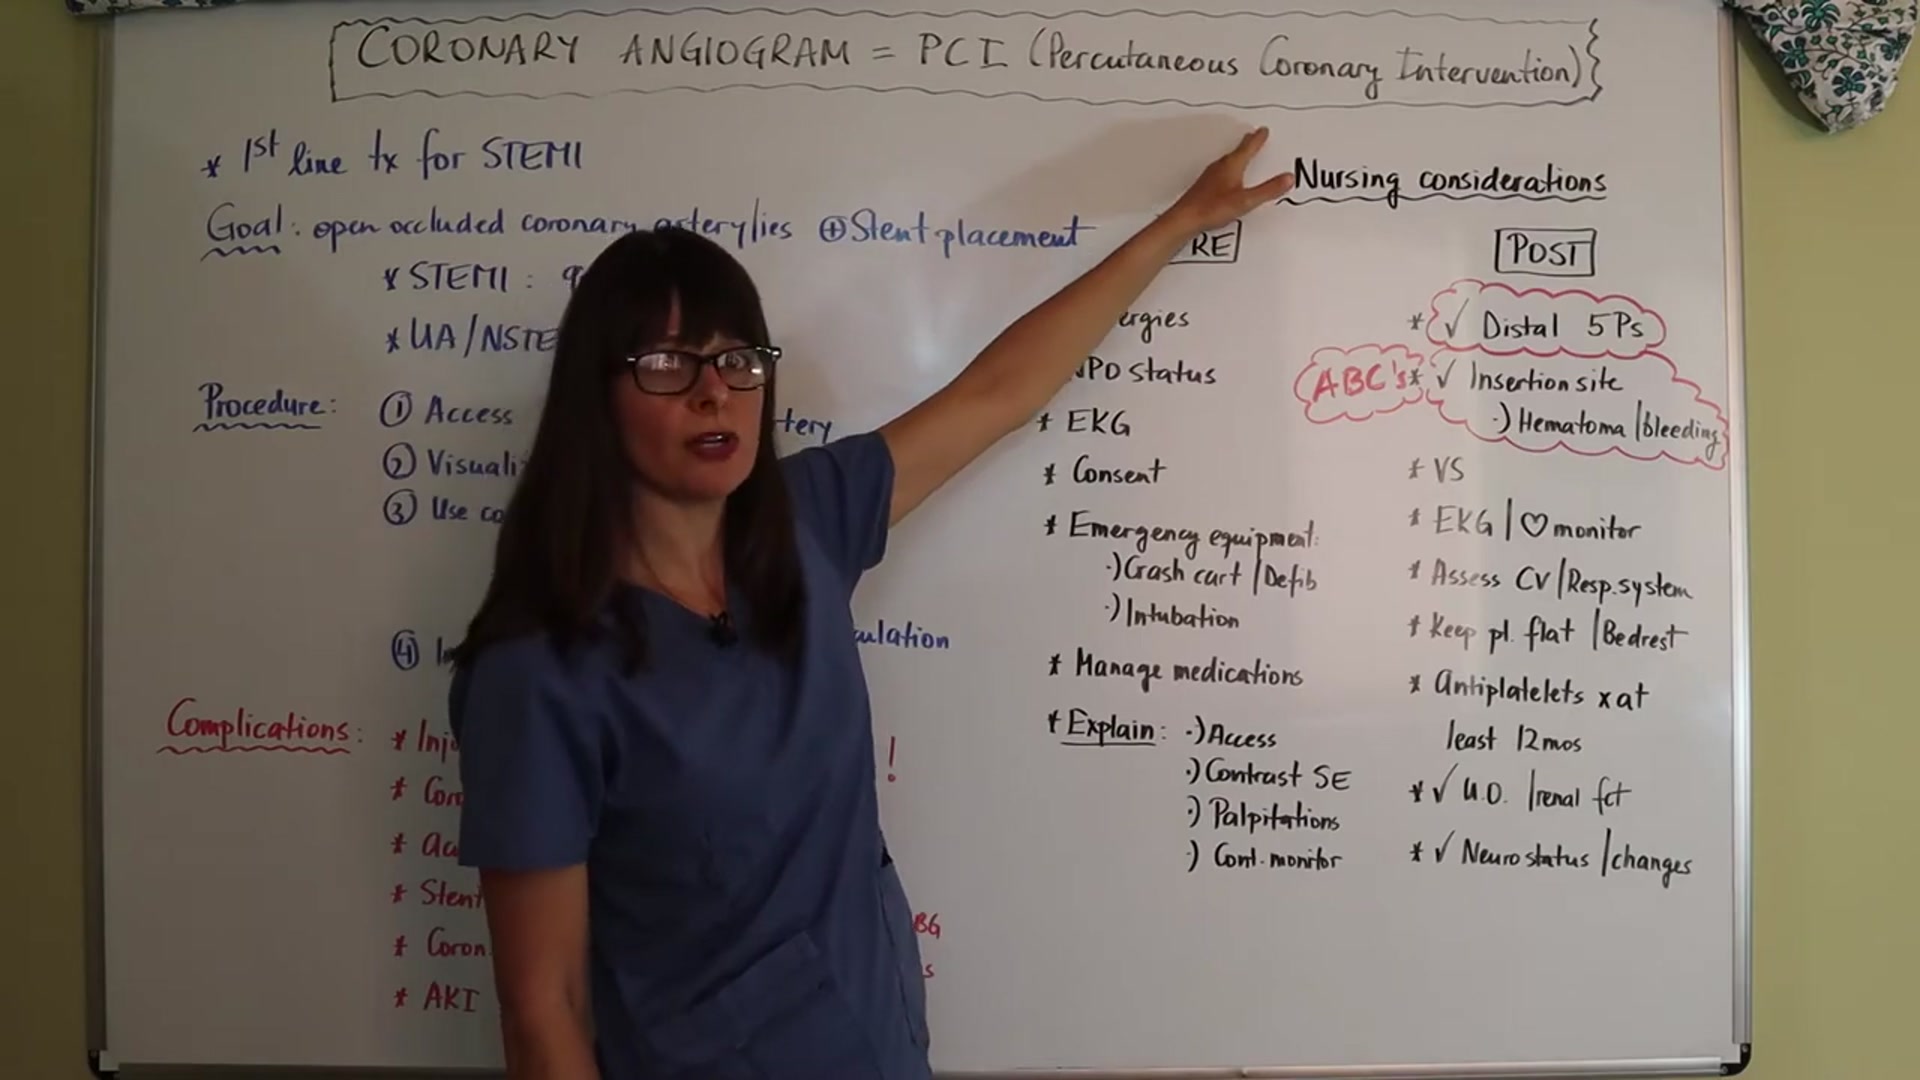 CORONARY ANGIOGRAM = PCI (Percutaneous Coronary Intervention)
* 1st line tx for STEMI
Goal: open occluded coronary artery/ies ⊕ Stent placement
* STEMI :
* UA/NSTE
Procedure: ① Access
tery
② Visuali
③ Use co
④
ulation
Complications: * Inj
!
* Coro
*
* Stent
BG
* Coron
s
* AKI
Nursing considerations
RE
ergies
NPO status
* EKG
* Consent
* Emergency equipment:
·) Crash cart / Defib
·) Intubation
* Manage medications
* Explain: ·) Access
·) Contrast SE
·) Palpitations
·) Cont. monitor
POST
* ✓ Distal 5Ps
ABC's * ✓ Insertion site
·) Hematoma / bleeding
* VS
* EKG / ♡ monitor
* Assess CV / Resp. system
* Keep pt. flat / Bedrest
* Antiplatelets x at
least 12mos
* ✓ U.O. / renal fct
* ✓ Neuro status / changes